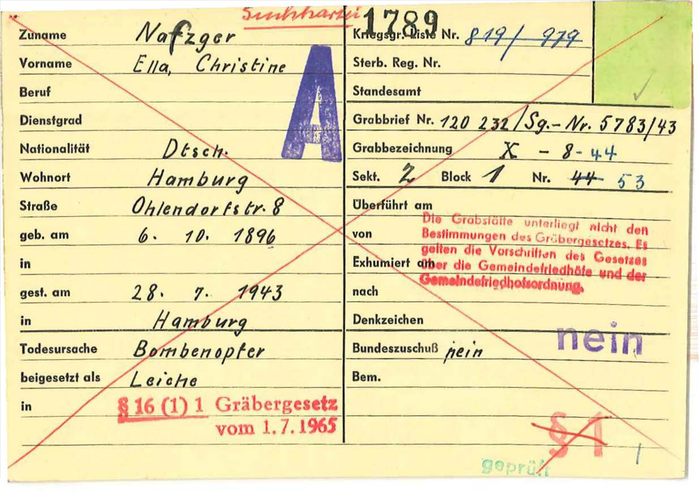 Suchkartei
1789
Zuname Nafzger
Vorname Ella, Christine
Beruf
Dienstgrad
Nationalität Dtsch.
Wohnort Hamburg
Straße Ohlendorfstr. 8
geb. am 6. 10. 1896
in
gest. am 28. 7. 1943
in Hamburg
Todesursache Bombenopfer
beigesetzt als Leiche
in
§ 16 (1) 1 Gräbergesetz
vom 1.7.1965
A
Kriegsgr. Liste Nr. 819/ 979
Sterb. Reg. Nr.
Standesamt
Grabbrief Nr. 120 232/Sg.-Nr. 5783/43
Grabbezeichnung X - 8 - 44
Sekt. 2 Block 1 Nr. 44 53
Überführt am
von
Exhumiert am
nach
Die Grabstätte unterliegt nicht den
Bestimmungen des Gräbergesetzes. Es
gelten die Vorschriften des Gesetzes
über die Gemeindefriedhöfe und der
Gemeindefriedhofsordnung.
Denkzeichen
nein
Bundeszuschuß nein
Bem.
§ 1
geprüft